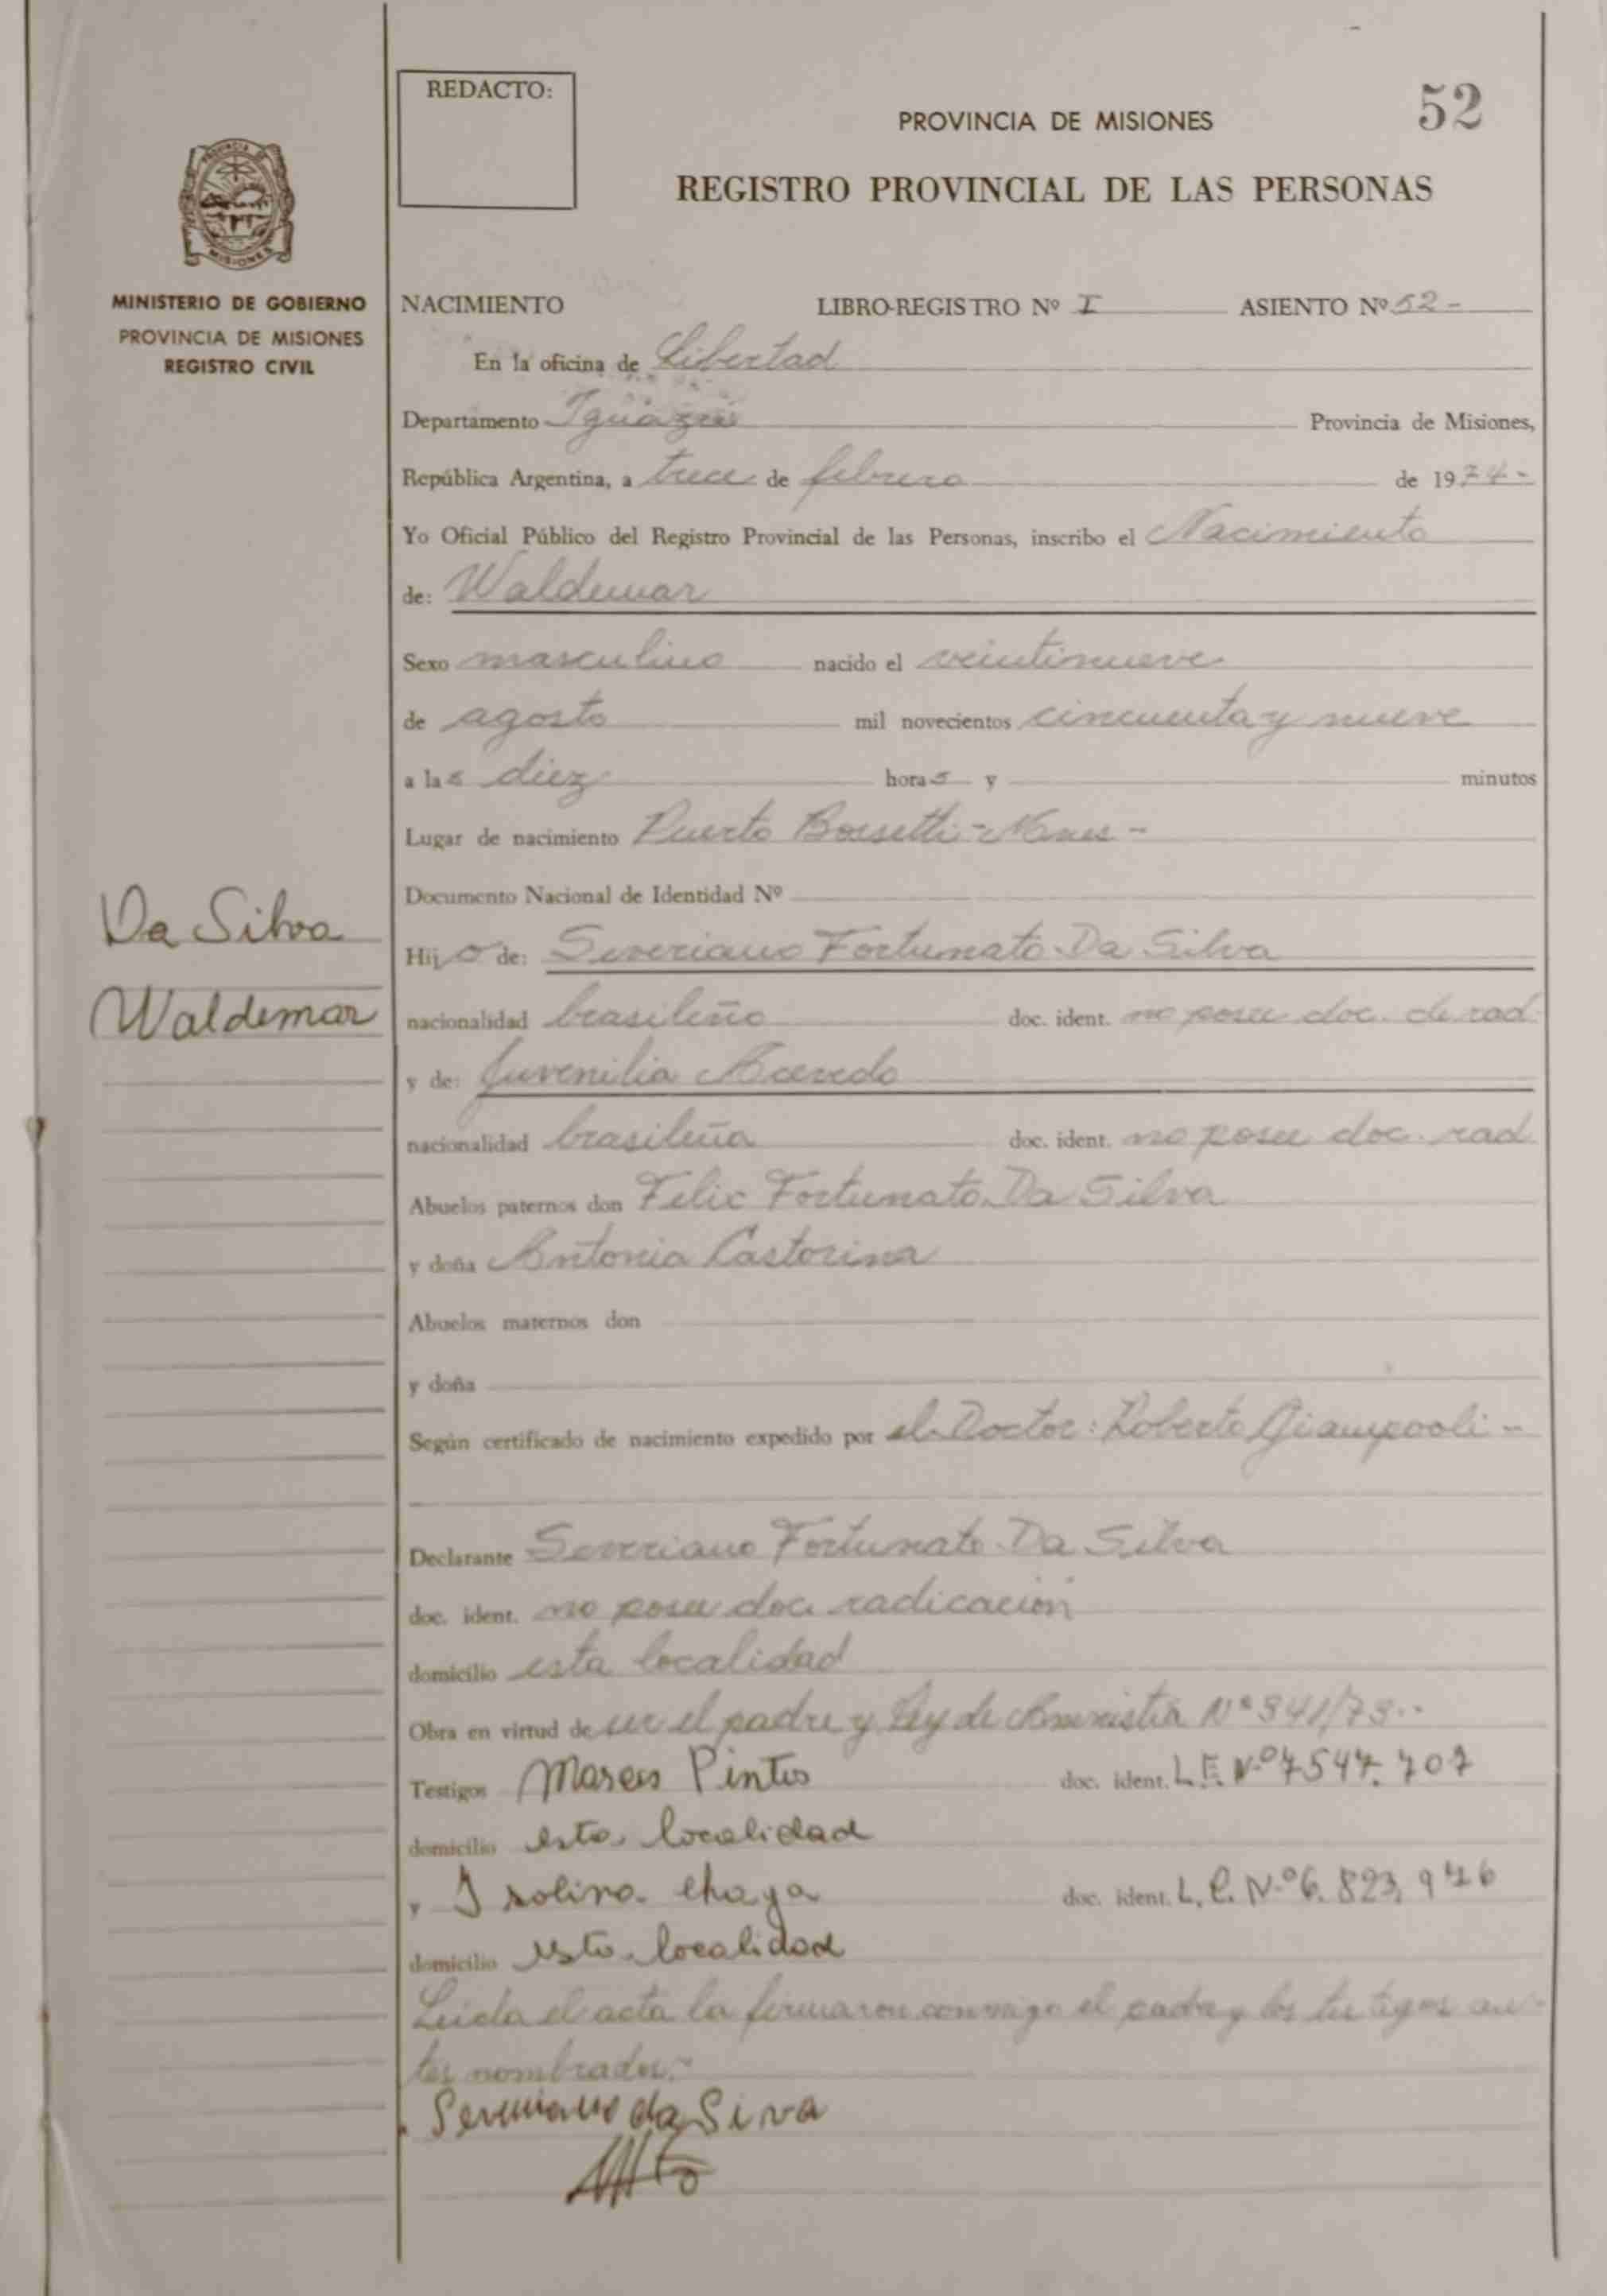 REDACTO:
52
PROVINCIA DE MISIONES
REGISTRO PROVINCIAL DE LAS PERSONAS
PROVINCIA DE
MISIONES
MINISTERIO DE GOBIERNO
PROVINCIA DE MISIONES
REGISTRO CIVIL
NACIMIENTO LIBRO-REGISTRO Nº I ASIENTO Nº 52-
En la oficina de Libertad
Departamento Iguazú Provincia de Misiones,
República Argentina, a trece de febrero de 1974-
Yo Oficial Público del Registro Provincial de las Personas, inscribo el Nacimiento
de: Waldemar
Sexo masculino nacido el veintinueve
de agosto mil novecientos cincuenta y nueve
a las diez horas y minutos
Lugar de nacimiento Puerto Bossetti-
Documento Nacional de Identidad Nº
Da Silva
Waldemar
Hijo de: Severiano Fortunato Da Silva
nacionalidad brasileño doc. ident. no posee doc. de rad.
y de: Juvenilia Acevedo
nacionalidad brasileña doc. ident. no posee doc. rad
Abuelos paternos don Felix Fortunato Da Silva
y doña Antonia Castorina
Abuelos maternos don
y doña
Según certificado de nacimiento expedido por el Doctor: Roberto Giampaoli-
Declarante Severiano Fortunato Da Silva
doc. ident. no posee doc. radicación
domicilio esta localidad
Obra en virtud de ser el padre y Ley de Amnistia Nº 341/73.-
Testigos Marcos Pintos doc. ident. L.E. Nº 7547.707
domicilio esta localidad
y Isolina Chaya doc. ident. L.C. Nº 6.823.976
domicilio esta localidad
Leida el acta la firmaron conmigo el padre y los testigos an-
tes nombrados.-
Severiano da Siva